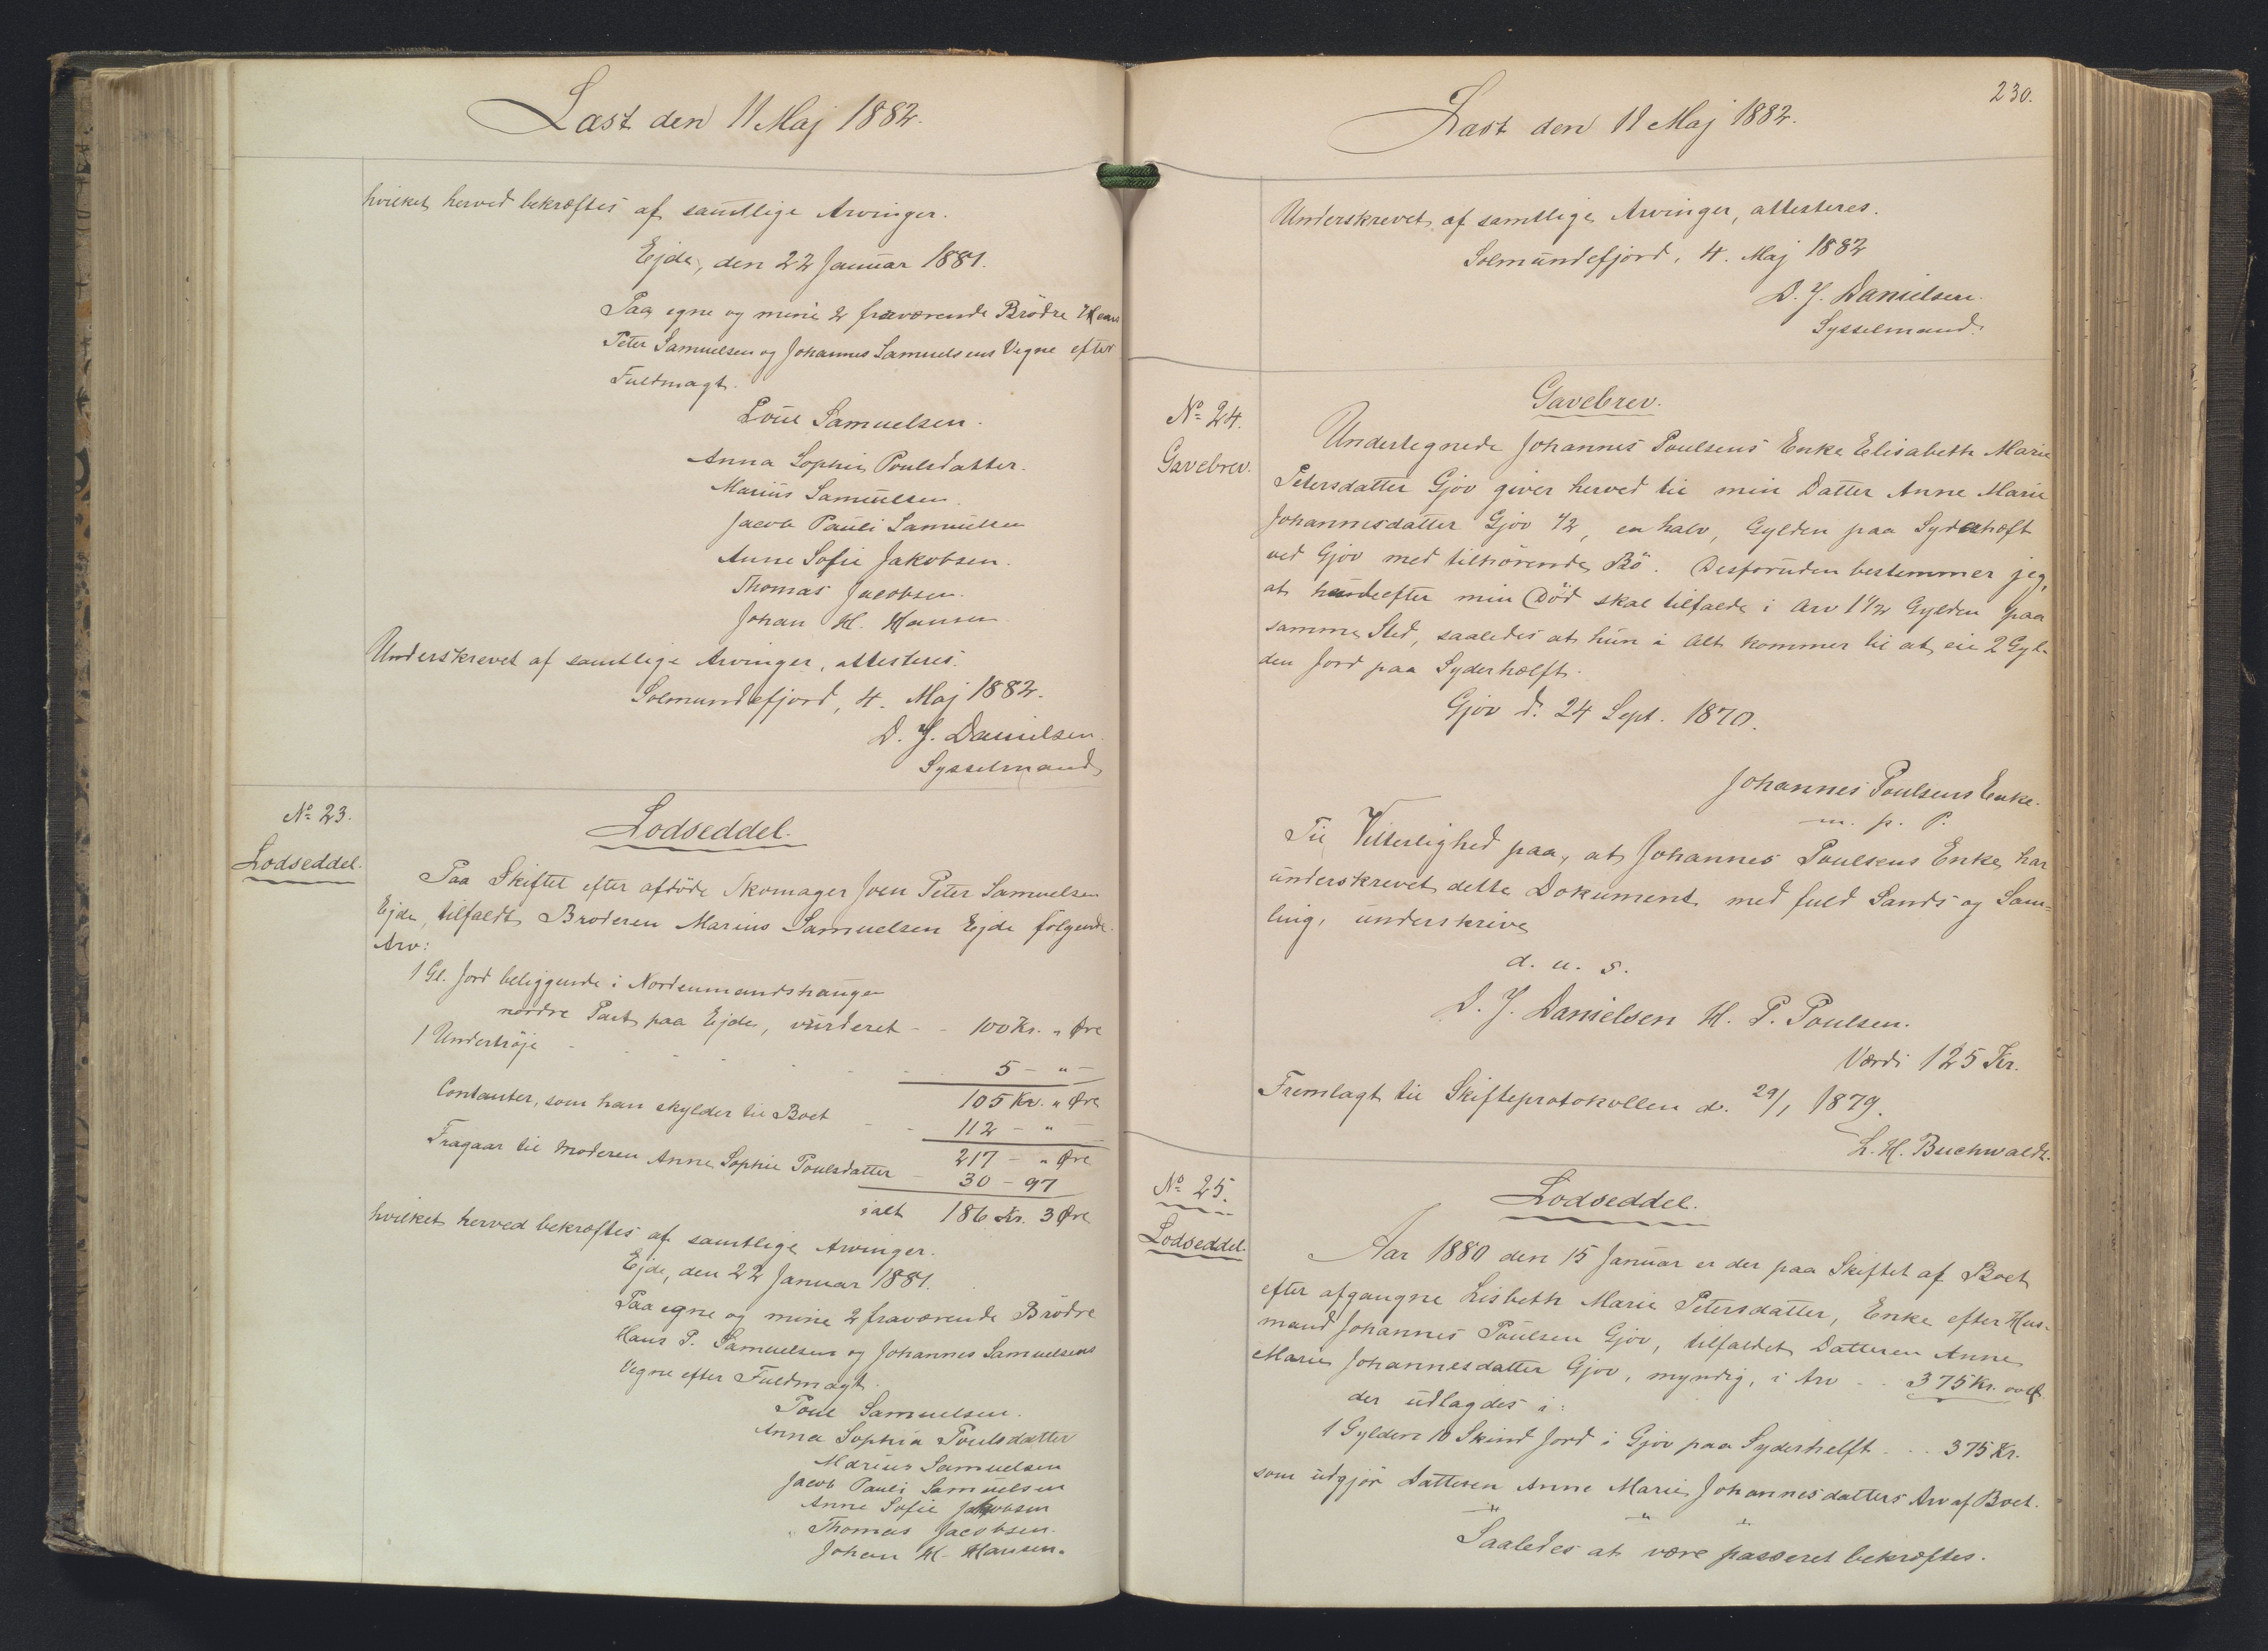 Læst den 11 Maj 1882.
hvilket herved bekræftes af samtlige Arvinger.
Ejde, den 22 Januar 1881.
Paa egne og mine 2 fraværende Brödre Hans
Peter Samuelsen og Johannes Samuelsens Vegne efter
Fuldmagt.
Poul Samuelsen.
Anna Sophie Poulsdatter.
Marius Samuelsen.
Jacob Pauli Samuelsen
Anne Sofie Jakobsen.
Thomas Jacobsen.
Johan H. Hansen
Underskrevet af samtlige Arvinger, attesteres.
Solmundefjord, 4. Maj 1882.
D. J. Danielsen.
Sysselmand
No 23.
Lodseddel.
Lodseddel.
Paa Skiftet efter afdöde Skomager Joen Peter Samuelsen
Ejde, tilfaldt Broderen Marius Samuelsen Ejde fölgende
Arv:
1 Gl. Jord beliggende i Nordenmandshaugen
nordre Part paa Ejde, vurderet - - 100 Kr. " Øre
1 Undertröje - - - - - 5 - " -
105 Kr. " Øre
Contanter, som han skylder til Boet - - 112 - " -
217 - " Øre
Fragaar til Moderen Anne Sophie Poulsdatter - 30 - 97
ialt 186 Kr. 3 Øre
hvilket herved bekræftes af samtlige Arvinger.
Ejde, den 22 Januar 1881.
Paa egne og mine 2 fraværende Brödre
Hans P. Samuelsen og Johannes Samuelsens
Vegne efter Fuldmagt.
Poul Samuelsen.
Anna Sophia Poulsdatter
Marius Samuelsen
Jacob Pauli Samuelsen
Anne Sofie Jakobsen
Thomas Jacobsen.
Johan H. Hansen.
230.
Læst den 11 Maj 1882.
Underskrevet af samtlige Arvinger, attesteres.
Solmundefjord, 4. Maj 1882
D. J. Danielsen.
Sysselmand.
No 24.
Gavebrev.
Gavebrev.
Undertegnede Johannes Poulsens Enke Elisabeth Marie
Petersdatter Gjov giver herved til min Datter Anne Marie
Johannesdatter Gjov 1/2, en halv, Gylden paa Syderhæft
ved Gjov med tilhörende Bö. Desforuden bestemmer jeg,
at hende efter min Död skal tilfalde i Arv 1 1/2 Gylden paa
samme Sted, saaledes at hun i Alt kommer til at eie 2 Gyl-
den Jord paa Syderhælft.
Gjov d. 24 Sept. 1870.
Johannes Poulsens Enke.
m. p. P.
Til Vitterlighed paa, at Johannes Poulsens Enke har
underskrevet dette Dokument med fuld Sands og Sam=
ling, underskrive
d. u. s.
D. J. Danielsen H. P. Poulsen.
Værdi 125 Kr.
Fremlagt til Skifteprotokollen d. 29/1 1879.
L. H. Buchwaldt.
No 25.
Lodseddel.
Lodseddel.
Aar 1880 den 15 Januar er der paa Skiftet af Boet
efter afgangne Lisbeth Marie Petersdatter, Enke efter Hus-
mand Johannes Poulsen Gjov, tilfaldet Datteren Anne
Marie Johannesdatter Gjov, myndig, i Arv - - 375 Kr.
der udlagdes i:
1 Gylden 10 Skind Jord i Gjov paa Syderhelft - - 375 Kr.
som udgjör Datteren Anne Marie Johannesdatters Arv af Boet.
" " "
Saaledes at være passeret bekræftes.